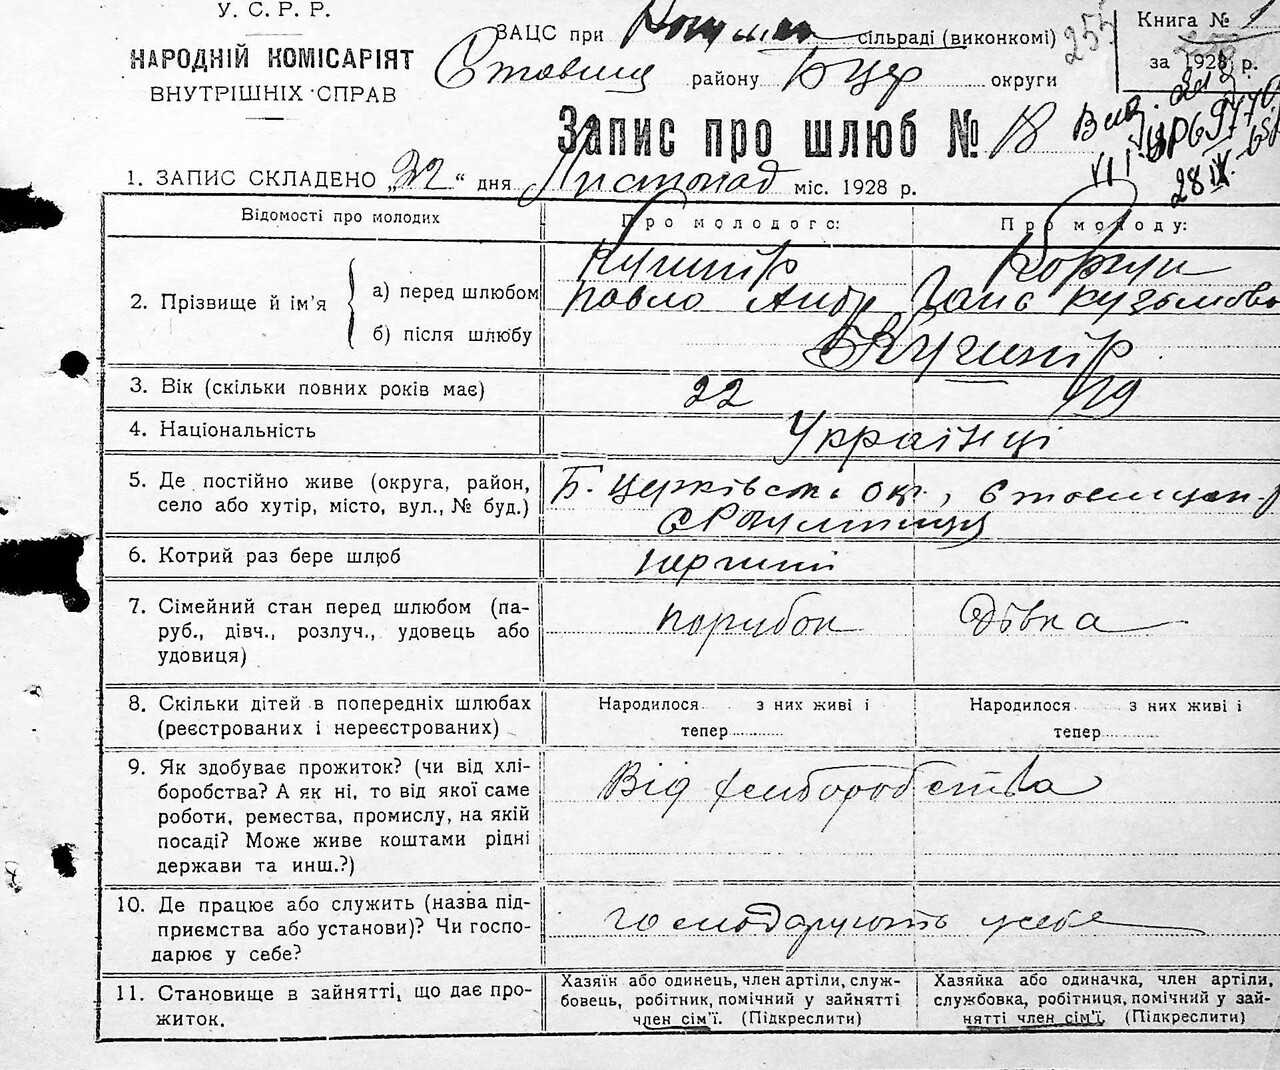 У. С. Р. Р.
НАРОДНІЙ КОМІСАРІЯТ
ВНУТРІШНІХ СПРАВ
ЗАЦС при сільраді (виконкомі)
Ставищ району БЦер округи
Книга №
за 1928 р.
Запис про шлюб № 18
1. ЗАПИС СКЛАДЕНО „22“ дня Листопад міс. 1928 р.
28 IX.
Відомості про молодих
Про молодого:
Про молоду:
2. Прізвище й ім'я
а) перед шлюбом
б) після шлюбу
Кушнір
Павло
Ганя Кузьмовн
Кушнір
3. Вік (скільки повних років має)
22
19
4. Національність
Українці
5. Де постійно живе (округа, район,
село або хутір, місто, вул., № буд.)
Б. Церківськ. ок., Ставищан. р
6. Котрий раз бере шлюб
перший
7. Сімейний стан перед шлюбом (па-
руб., дівч., розлуч., удовець або
удовиця)
парубок
дівка
8. Скільки дітей в попередніх шлюбах
(реєстрованих і нереєстрованих)
Народилося з них живі і
тепер
Народилося з них живі і
тепер
9. Як здобуває прожиток? (чи від хлі-
боробства? А як ні, то від якої саме
роботи, ремества, промислу, на якій
посаді? Може живе коштами рідні
держави та инш.?)
Від хліборобства
10. Де працює або служить (назва під-
приємства або установи)? Чи госпо-
дарює у себе?
господарують у себе
11. Становище в зайнятті, що дає про-
житок.
Хазяїн або одинець, член артіли, служ-
бовець, робітник, помічний у зайнятті
член сім'ї. (Підкреслити)
Хазяйка або одиначка, член артіли,
службовка, робітниця, помічний у зай-
нятті член сім'ї. (Підкреслити)